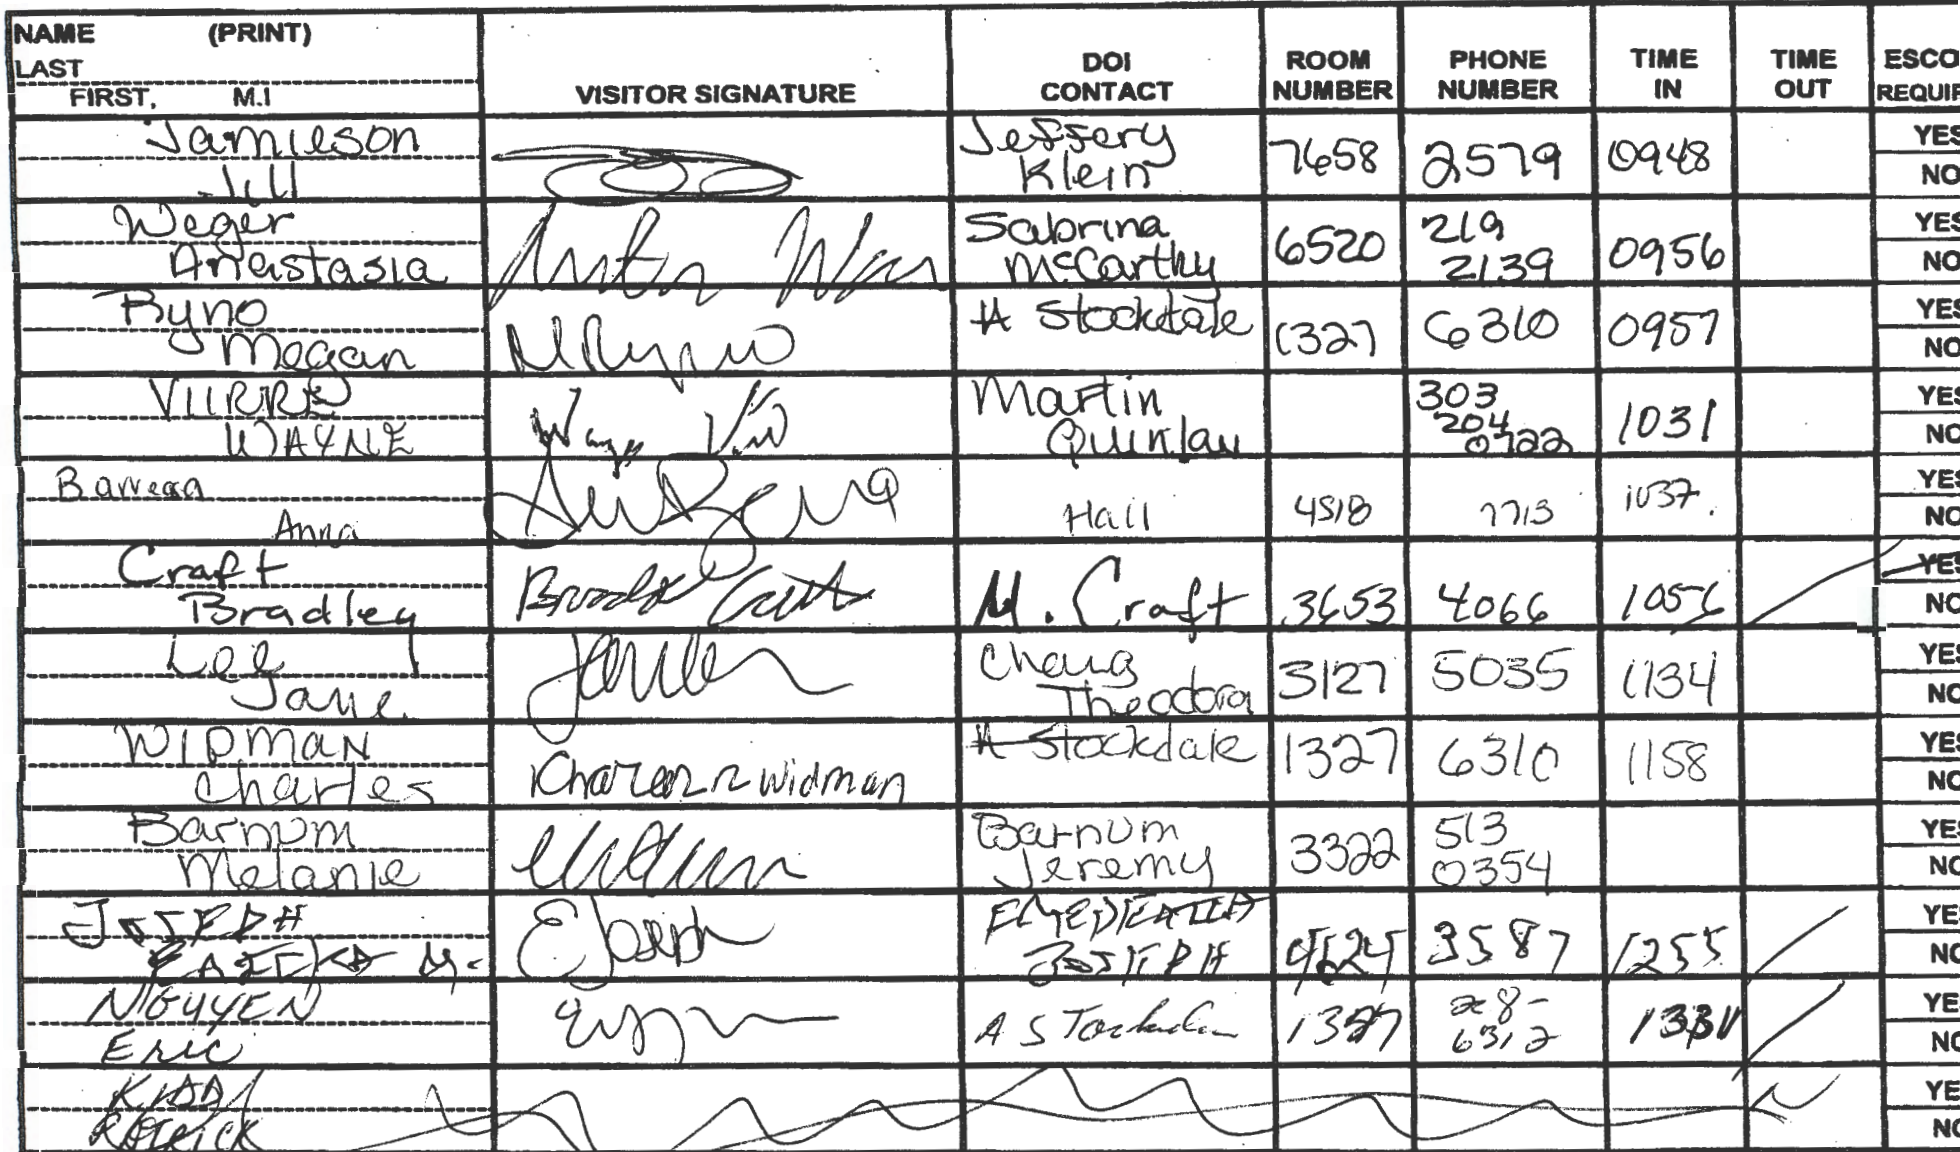 NAME (PRINT)
LAST
FIRST, M.I
VISITOR SIGNATURE
DOI CONTACT
ROOM NUMBER
PHONE NUMBER
TIME IN
TIME OUT
ESCO
REQUIR
Jamieson
Jill
Jeffery
Klein
7658
2579
0948
YES
NO
Weger
Anastasia
Sabrina
McCarthy
6520
219
2139
0956
YES
NO
Ryno
Megan
MRyno
A Stockdale
1327
6310
0957
YES
NO
VIIRRE
WAYNE
Martin
Quinlan
303
204
0722
1031
YES
NO
Barrera
Anna
Hall
4518
7713
1037.
YES
NO
Craft
Bradley
M. Craft
3653
4066
1056
YES
NO
Lee
Jane
Chang
Theodora
3127
5035
1134
YES
NO
WIDMAN
Charles
Widman
A Stockdale
1327
6310
1158
YES
NO
Barnum
Melanie
Barnum
Jeremy
3322
513
0354
YES
NO
JOSEPH
EJoseph
JOSEPH
3587
1255
YES
NO
NGUYEN
Eric
A Stockdale
1327
6312
1331
YE
NO
KIDD
YE
NO